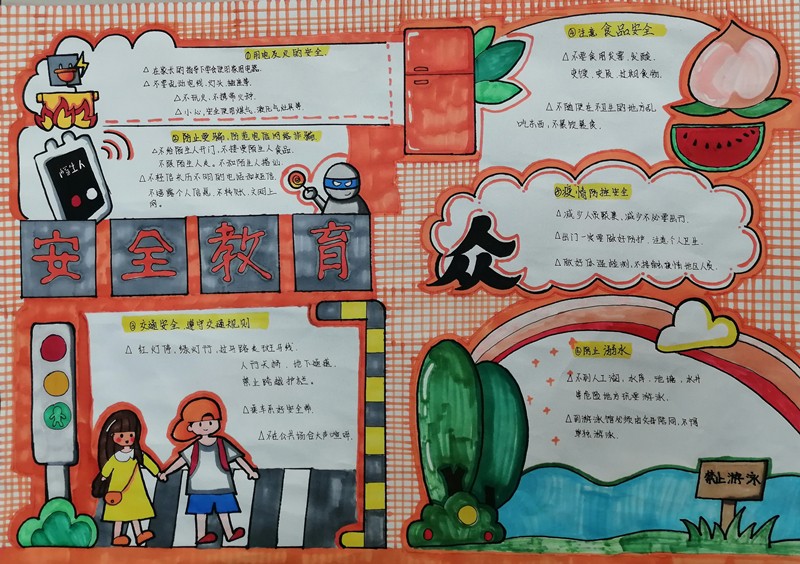 ①用电及火的安全
△在家长的指导下学会使用家用电器。
△不要乱动电线,灯头,插座等。
△不玩火,不携带火种。
△小心,安全使用煤气,液化气灶具等。
②防止受骗,防范电信网络诈骗
△不给陌生人开门,不接受陌生人食品,
不跟陌生人走。不和陌生人搭讪。
△不轻信来历不明的电话和短信,
不透露个人信息,不转账,文明上
网。
陌生人
安全教育
③交通安全,遵守交通规则
△红灯停,绿灯行,过马路走斑马线,
人行天桥,地下通道,
禁止跨越护栏。
△乘车系好安全带。
△不在公共场合大声喧哗。
④注意食品安全
△不要食用发霉,
变馊,变质,过期食物。
△不随便在不卫生的地方乱
吃东西,不暴饮暴食。
⑤疫情防控安全
△减少人员聚集,减少不必要出行。
△出门一定要做好防护,注意个人卫生。
△做好体温检测,不接触疫情地区人员。
众
⑥防止溺水
△不到人工湖,水库,池塘,水井
等危险地方玩耍游泳。
△到游泳馆必须由父母陪同,不得
单独游泳。
禁止游泳